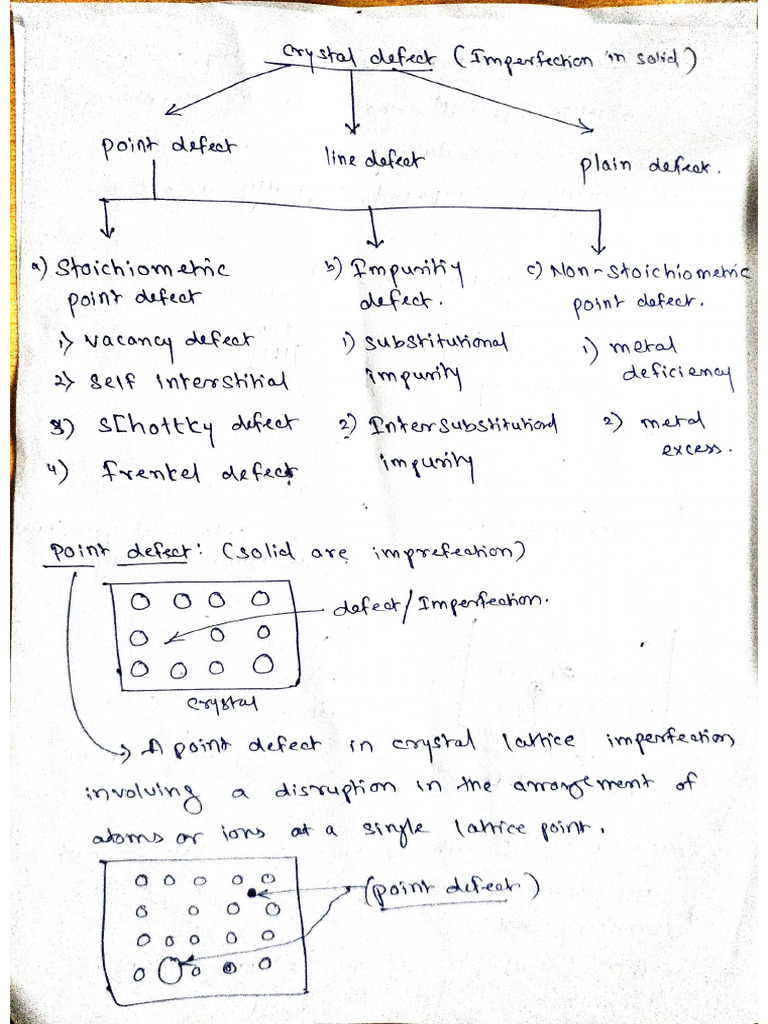 crystal defect (Imperfection in solid)
point defect
line defect
plain defect.
a) Stoichiometric
point defect
1) vacancy defect
2) self interstitial
3) schottky defect
4) frenkel defect
b) Impuritiy
defect.
1) substitutional
impurity
2) Intersubstitutional
impurity
c) Non-stoichiometric
point defect.
1) metal
deficiency
2) metal
excess.
point defect: (solid are imprefection)
defect/Imperfection.
crystal
A point defect in crystal lattice imperfection
involving a disruption in the arrangement of
atoms or ions at a single lattice point.
(point defect)